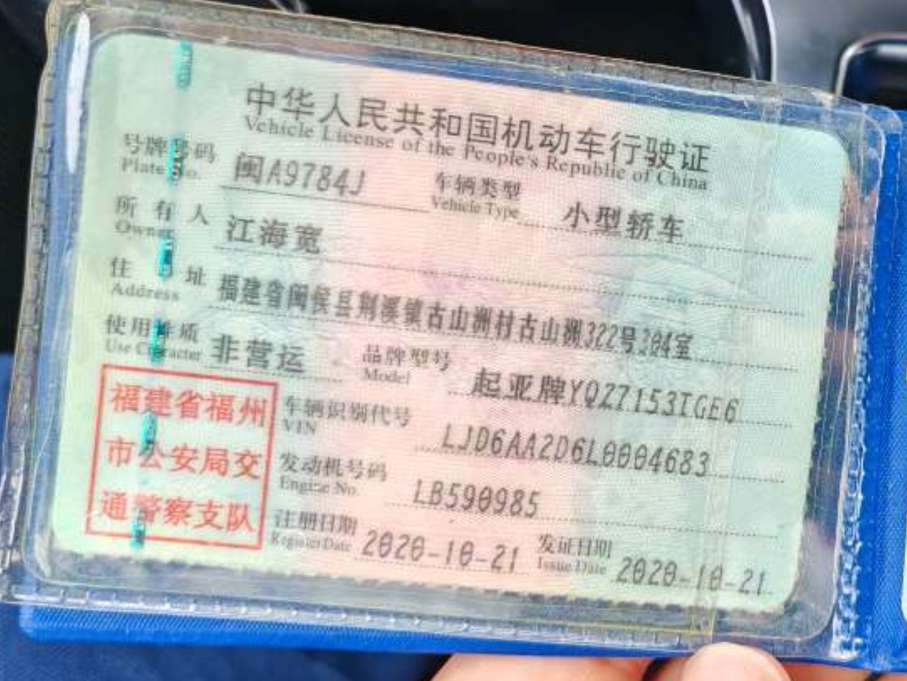 中华人民共和国机动车行驶证
Vehicle License of the People's Republic of China
号牌号码 闽A9784J 车辆类型 小型轿车
Plate No. Vehicle Type
所有人 江海宽
Owner
住址 福建省闽侯县荆溪镇古山洲村古山洲322号304室
Address
使用性质 非营运 品牌型号 起亚牌YQZ7153TGE6
Use Character Model
福建省福州
市公安局交
通警察支队
车辆识别代号 LJD6AA2D6L0004683
VIN
发动机号码 LB590985
Engine No.
注册日期 2020-10-21 发证日期 2020-10-21
Register Date Issue Date